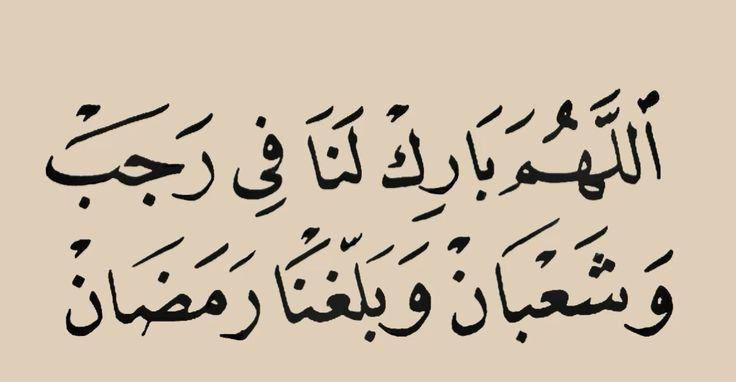 ٱللَّهُمَ بَارِكْ لَنَا فِي رَجَبْ
وَشَعْبَانْ وَبَلِّغْنَا رَمَضَانْ